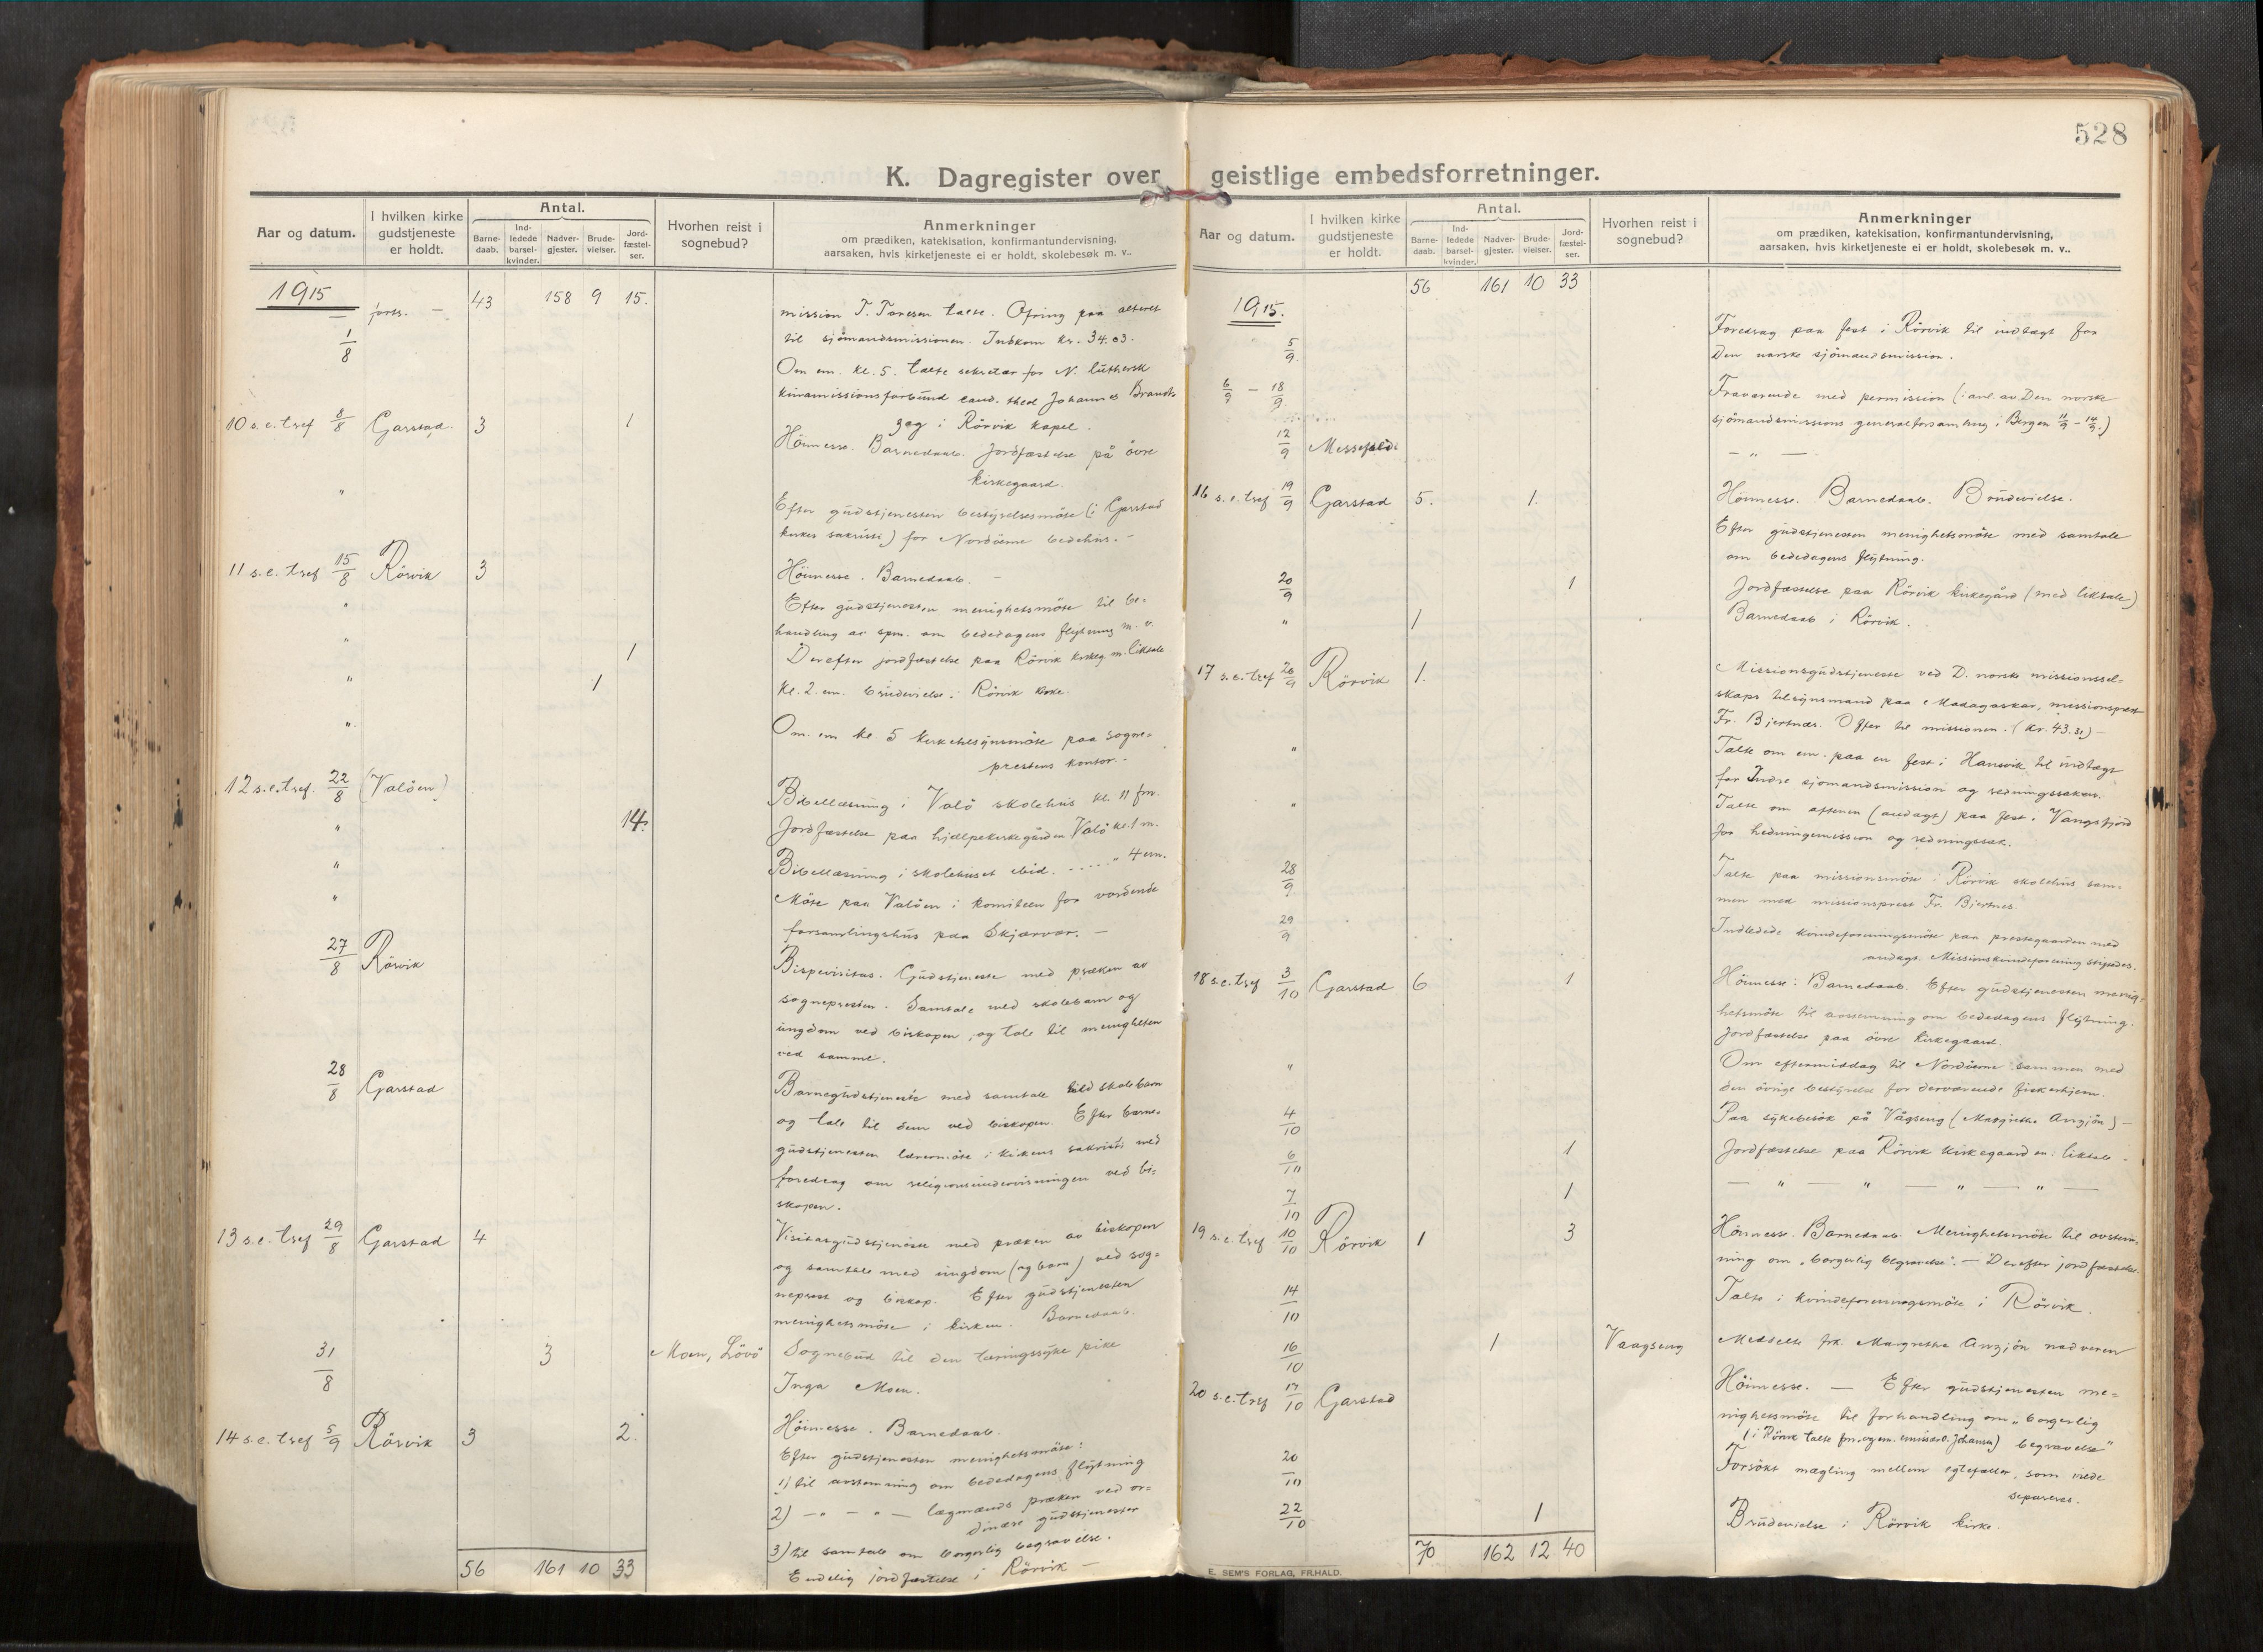 528
K. Dagregister over geistlige embedsforretninger.
Aar og datum.
I hvilken kirke gudstjeneste er holdt.
Antal.
Barne-daab.
Ind-ledede barsel-kvinder.
Nadver-gjester.
Brude-vielser.
Jord-fæstel-ser.
Hvorhen reist i sognebud?
Anmerkninger
om prædiken, katekisation, konfirmantundervisning,
aarsaken, hvis kirketjeneste ei er holdt, skolebesøk m. v..
1915 forts. — 43 158 9 15.
mission T. Toresen talte. Ofring paa alteret
1/8 til sjömandsmissionen. Indkom kr. 34.03.
Om em. kl. 5. talte sekretær for N. luthersk
kinamissionsforbund cand. theol Johannes
i Rörvik kapel.
10 s.e.tref 8/8 Garstad. 3 1
Höimesse. Barnedaab. Jordfæstelse på övre
kirkegaard.
" Efter gudstjenesten bestyrelsesmöte (i Garstad
kirkes sakristi) for Nordöerne bedehus. -
11 s.e.tref 15/8 Rörvik 3 Höimesse. Barnedaab. —
" Efter gudstjenesten menighetsmöte til be-
handling av spm. om bededagens flytning m. v.
" 1 Derefter jordfæstelse paa Rörvik kirkeg. m. liktale
" 1 Kl. 2. em. brudevielse i Rörvik kirke.
" Om em kl 5 kirketilsynsmöte paa sogne-
prestens kontor. -
12 s.e.tref. 22/8 (Valöen) Bibellæsning i Valö skolehus kl. 11 fm.
" 14. Jordfæstelse paa hjælpekirkegården Valö kl. 1 m.
" Bibellæsning i skolehuset ibid. ..... " 4 em.
" Möte paa Valöen i komiteen for vordende
forsamlingshus paa Skjærvær. —
27/8 Rörvik Bispevisitas. Gudstjeneste med præken av
sognepresten. Samtale med skolebarn og
ungdom ved biskopen, og tale til menigheten
ved samme.
28/8 Garstad Barnegudstjeneste med samtale med skolebarn
og tale til dem ved biskopen. Efter barne-
gudstjenesten lærermöte i kirkens sakristi med
foredrag om religionsundervisningen ved bi-
skopen.
13 s.e.tref 29/8 Garstad 4 Visitasgudstjeneste med præken av biskopen
og samtale med ungdom (og barn) ved sog-
neprest og biskop. Efter gudstjenesten
menighetsmöte i kirken. Barnedaab.
31/8 3 Moen, Lövö Sognebud til den tæringssyke pike
Inga Moen.
14 s.e.tref 5/9 Rörvik 3 2. Höimesse. Barnedaab.
Efter gudstjenesten menighetsmöte:
1) til avstemning om bededagens flytning
2) — " — " — lægmands præken ved or-
dinære gudstjenester
3) til samtale om borgerlig begravelse.
56 161 10 33 Endelig jordfæstelse i Rörvik —
Aar og datum.
I hvilken kirke gudstjeneste er holdt.
Antal.
Barne-daab.
Ind-ledede barsel-kvinder.
Nadver-gjester.
Brude-vielser.
Jord-fæstel-ser.
Hvorhen reist i sognebud?
Anmerkninger
om prædiken, katekisation, konfirmantundervisning,
aarsaken, hvis kirketjeneste ei er holdt, skolebesøk m. v..
56 161 10 33
1915.
5/9. Foredrag paa fest i Rörvik til indtægt for
Den norske sjömandsmission.
6/9 — 18/9. Fraværende med permission (: anl. av Den norske
sjömandsmissions generalforsamling i Bergen 11/9 - 14/9.)
12/9 Messefald. — " —
16 s.e.tref 19/9 Garstad 5. 1. Höimesse. Barnedaab. Brudevielse.
Efter gudstjenesten menighetsmöte med samtale
om bededagens flytning.
20/9 1 Jordfæstelse paa Rörvik kirkegård (med liktale)
" 1 Barnedaab i Rörvik.
17 s.e.tref 26/9 Rörvik 1. Missionsgudstjeneste ved D. norske missionssel-
skaps tilsynsmand paa Madagaskar, missionsprest
Fr. Bjertnæs. Offer til missionen. (Kr. 43.31) —
" Talte om em. paa en fest i Hansvik til indtægt
for Indre sjömandsmission og redningssaken.
" Talte om aftenen (andagt) paa fest i Vangsfjord
for hedningemission og redningssak.
28/9 Talte paa missionsmöte i Rörvik skolehus sam-
men med missionsprest Fr. Bjertnes.
29/9 Indledede kvindeforeningsmöte paa prestegaarden med
andagt. Missionskvindeforening stiftedes.
18 s.e.tref 3/10 Garstad 6 1 Höimesse: Barnedaab. Efter gudstjenesten menig-
hetsmöte til avstemning om bededagens flytning.
Jordfæstelse paa övre kirkegaard.
" Om eftermiddag til Nordöerne sammen med
den övrige bestyrelse for derværende fiskerhjem.
4/10 Paa sykebesök på Vågseng (Margrethe Anzjön) —
6/10 1 Jordfæstelse paa Rörvik kirkegaard m. liktale -
7/10 1 — " — " — " — " —
19 s.e.tref 10/10 Rörvik 1 3 Höimesse. Barnedaab. Menighetsmöte til avstem-
ning om "borgerlig begravelse". — Derefter jordfæstelse.
14/10 Talte i kvindeforeningsmöte i Rörvik.
16/10 1 Vaagseng Meddelte frk. Margrethe Anzjön nadveren
20 s.e.tref 17/10 Garstad Höimesse. — Efter gudstjenesten me-
nighetsmöte til forhandling om "borgerlig
(i Rörvik talte fm. og em. emissær O. Johansen) begravelse"
20/10 Forsökt mægling mellem egtefæller, som vilde
separeres.
22/10 1 Brudevielse i Rörvik kirke.
70 162 12 40
E. SEM'S FORLAG, FR.HALD.